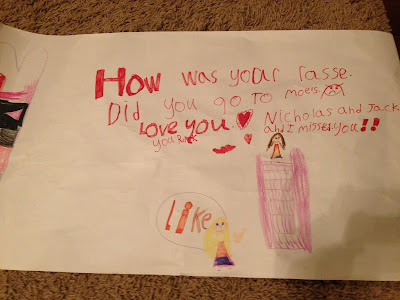 How was your rasse.
Did you go to moels.
Love you. Nicholas and Jack
you Rock and I missed you!!
Like